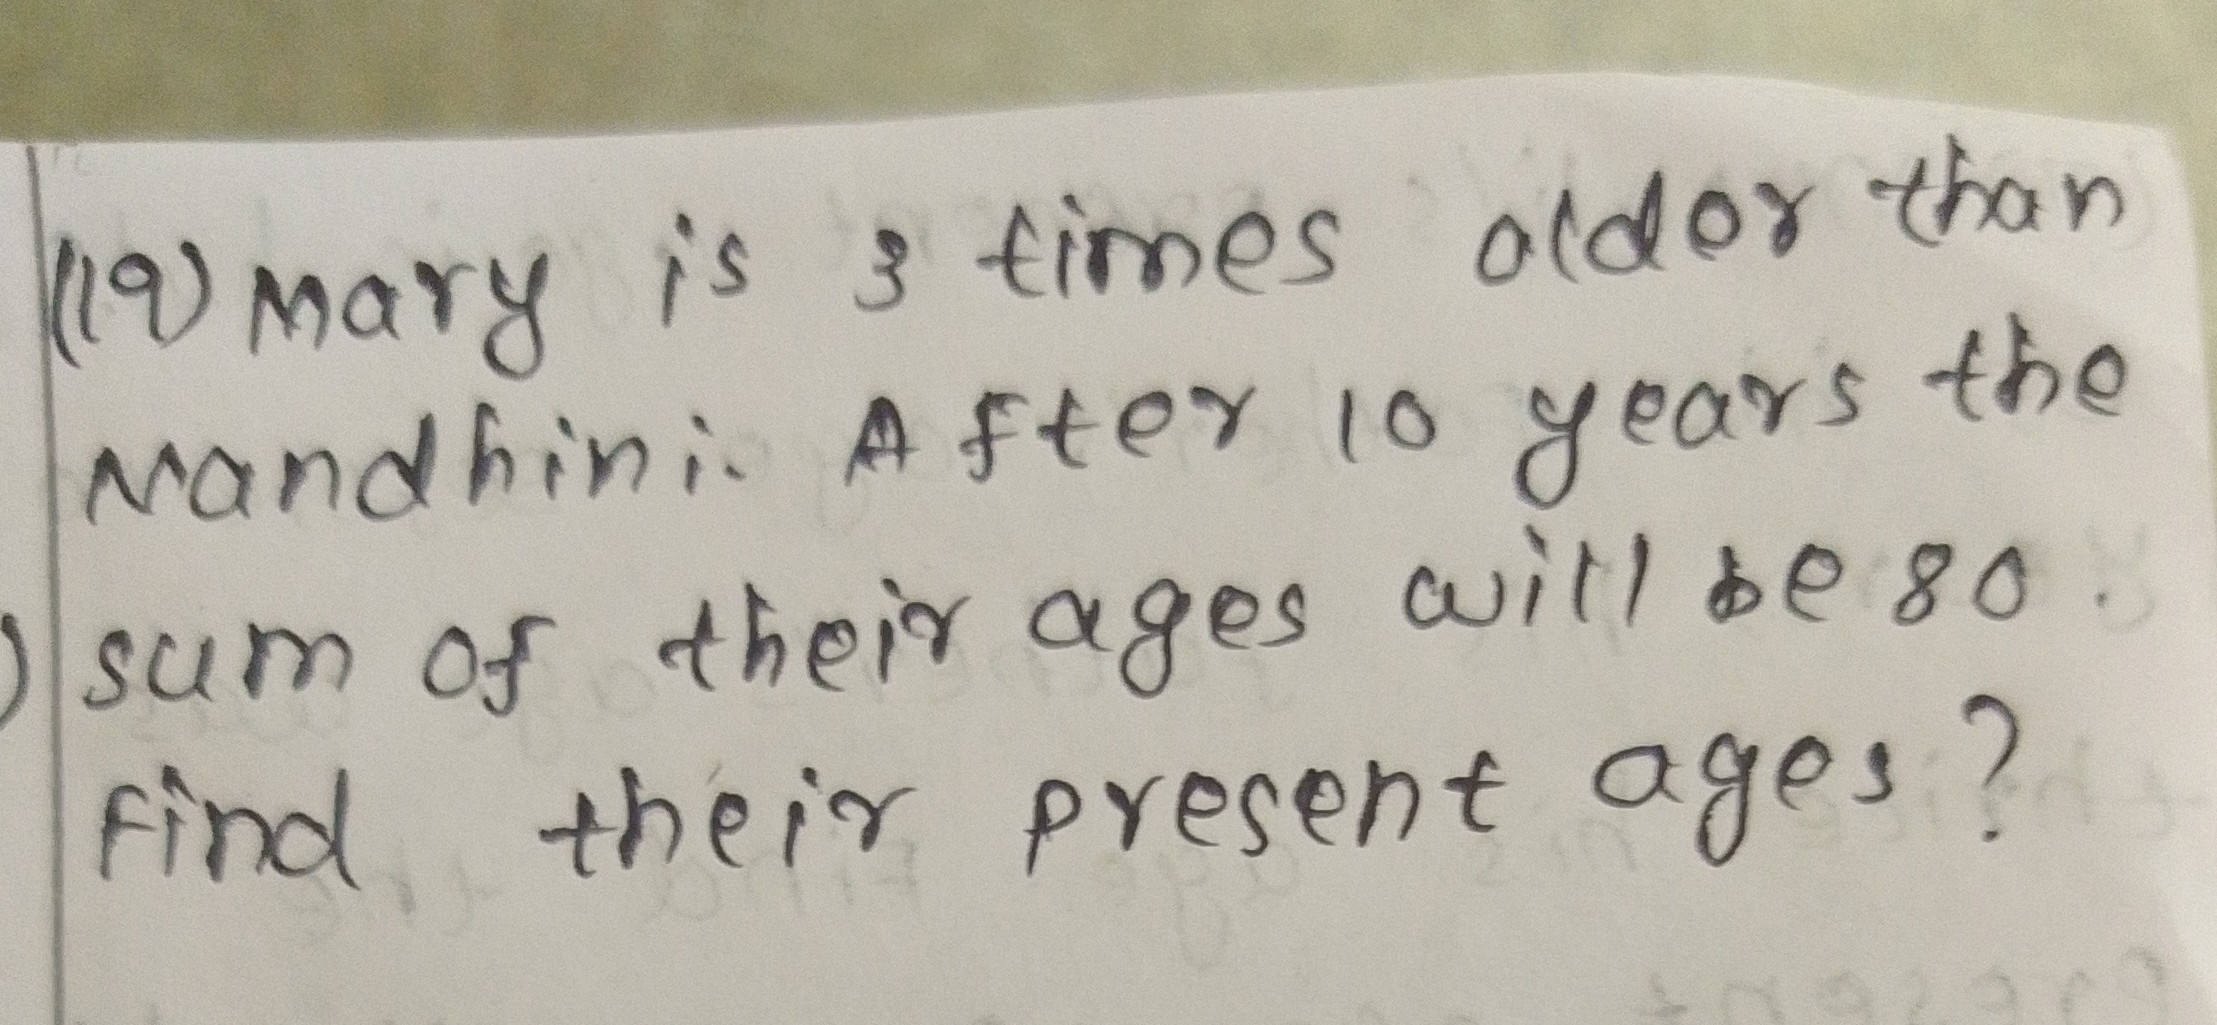 (19) Mary is 3 times older than
Nandhini. After 10 years the
sum of their ages will be 80.
Find their present ages?